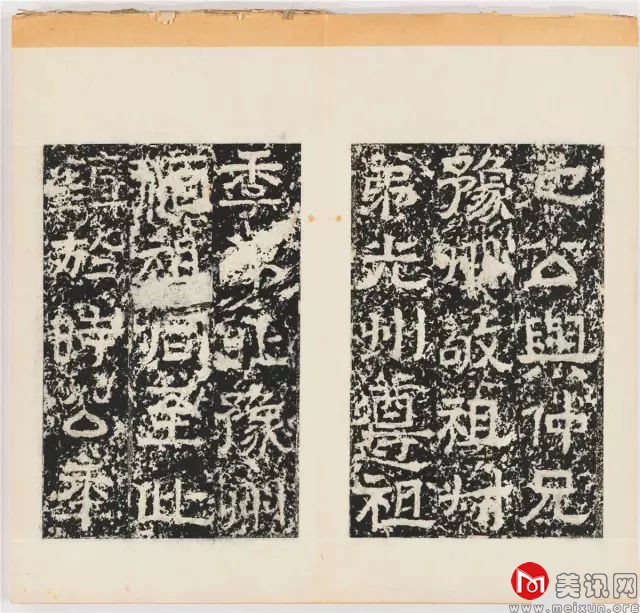 也公與仲兄
豫州敬祖叔
弟光州遵祖
季弟北豫州
順祖同至此
鎮於時公年
美讯网
www.meixun.org